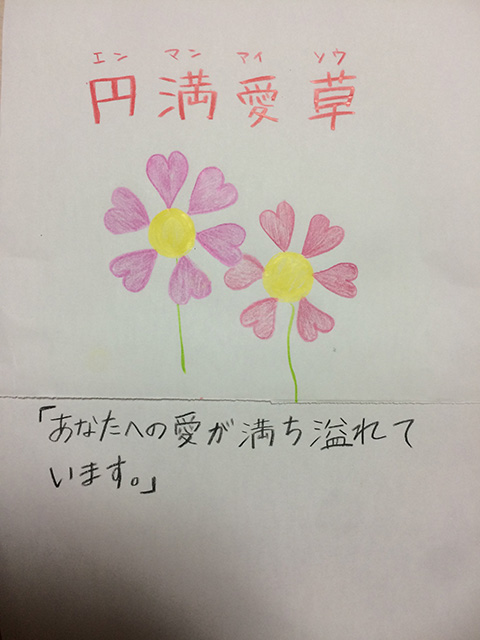 エン マン アイ ソウ
円満愛草
「あなたへの愛が満ち溢れて
います。」